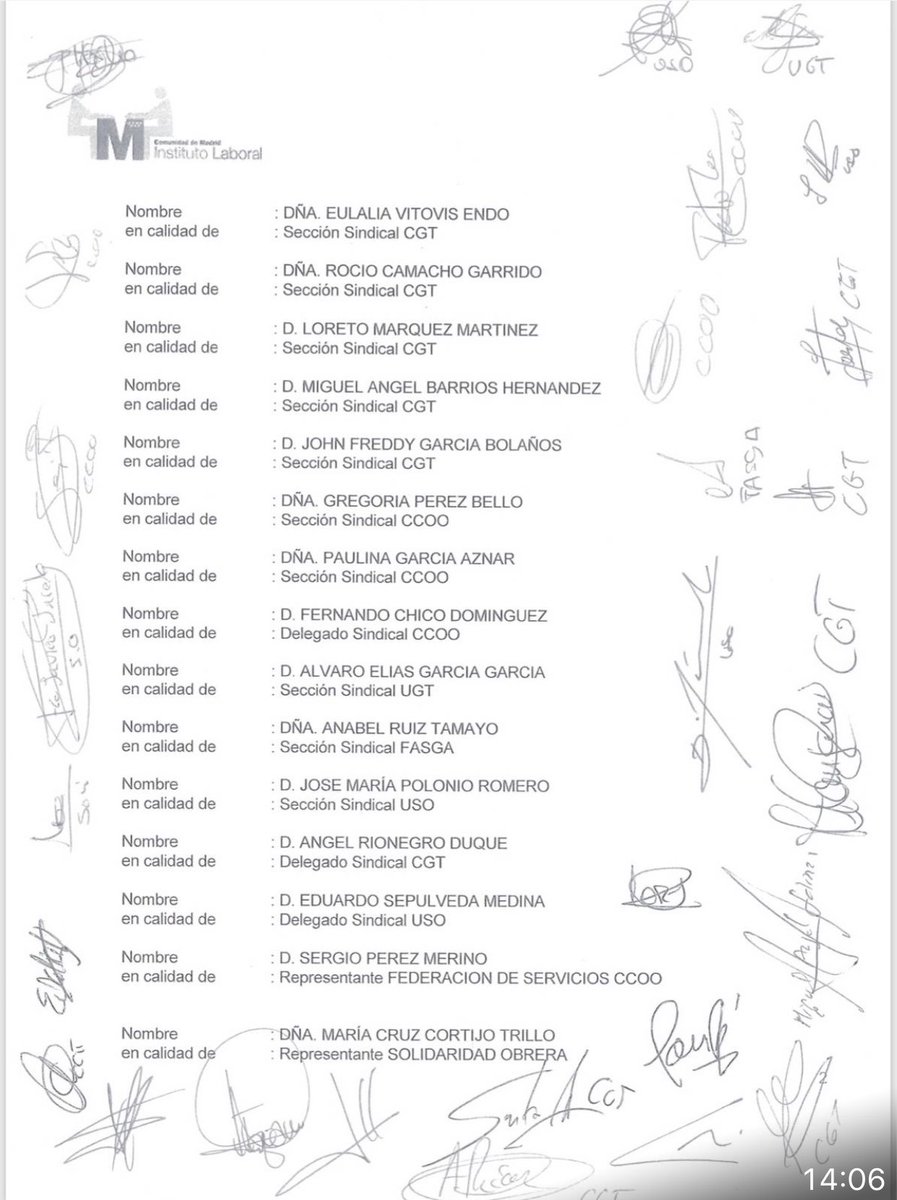 USO
UGT
CCOO
USO
Comunidad de Madrid
Instituto Laboral
Nombre : DÑA. EULALIA VITOVIS ENDO
en calidad de : Sección Sindical CGT
CCOO
Nombre : DÑA. ROCIO CAMACHO GARRIDO
en calidad de : Sección Sindical CGT
CGT
Nombre : D. LORETO MARQUEZ MARTINEZ
en calidad de : Sección Sindical CGT
CCOO
Nombre : D. MIGUEL ANGEL BARRIOS HERNANDEZ
en calidad de : Sección Sindical CGT
Nombre : D. JOHN FREDDY GARCIA BOLAÑOS
en calidad de : Sección Sindical CGT
CCOO
FASGA
CGT
Nombre : DÑA. GREGORIA PEREZ BELLO
en calidad de : Sección Sindical CCOO
Nombre : DÑA. PAULINA GARCIA AZNAR
en calidad de : Sección Sindical CCOO
Nombre : D. FERNANDO CHICO DOMINGUEZ
en calidad de : Delegado Sindical CCOO
S.O
USO
CGT
Nombre : D. ALVARO ELIAS GARCIA GARCIA
en calidad de : Sección Sindical UGT
Nombre : DÑA. ANABEL RUIZ TAMAYO
en calidad de : Sección Sindical FASGA
Nombre : D. JOSE MARÍA POLONIO ROMERO
en calidad de : Sección Sindical USO
Nombre : D. ANGEL RIONEGRO DUQUE
en calidad de : Delegado Sindical CGT
Nombre : D. EDUARDO SEPULVEDA MEDINA
en calidad de : Delegado Sindical USO
Nombre : D. SERGIO PEREZ MERINO
en calidad de : Representante FEDERACION DE SERVICIOS CCOO
Nombre : DÑA. MARÍA CRUZ CORTIJO TRILLO
en calidad de : Representante SOLIDARIDAD OBRERA
CGT
CGT
CGT
14:06